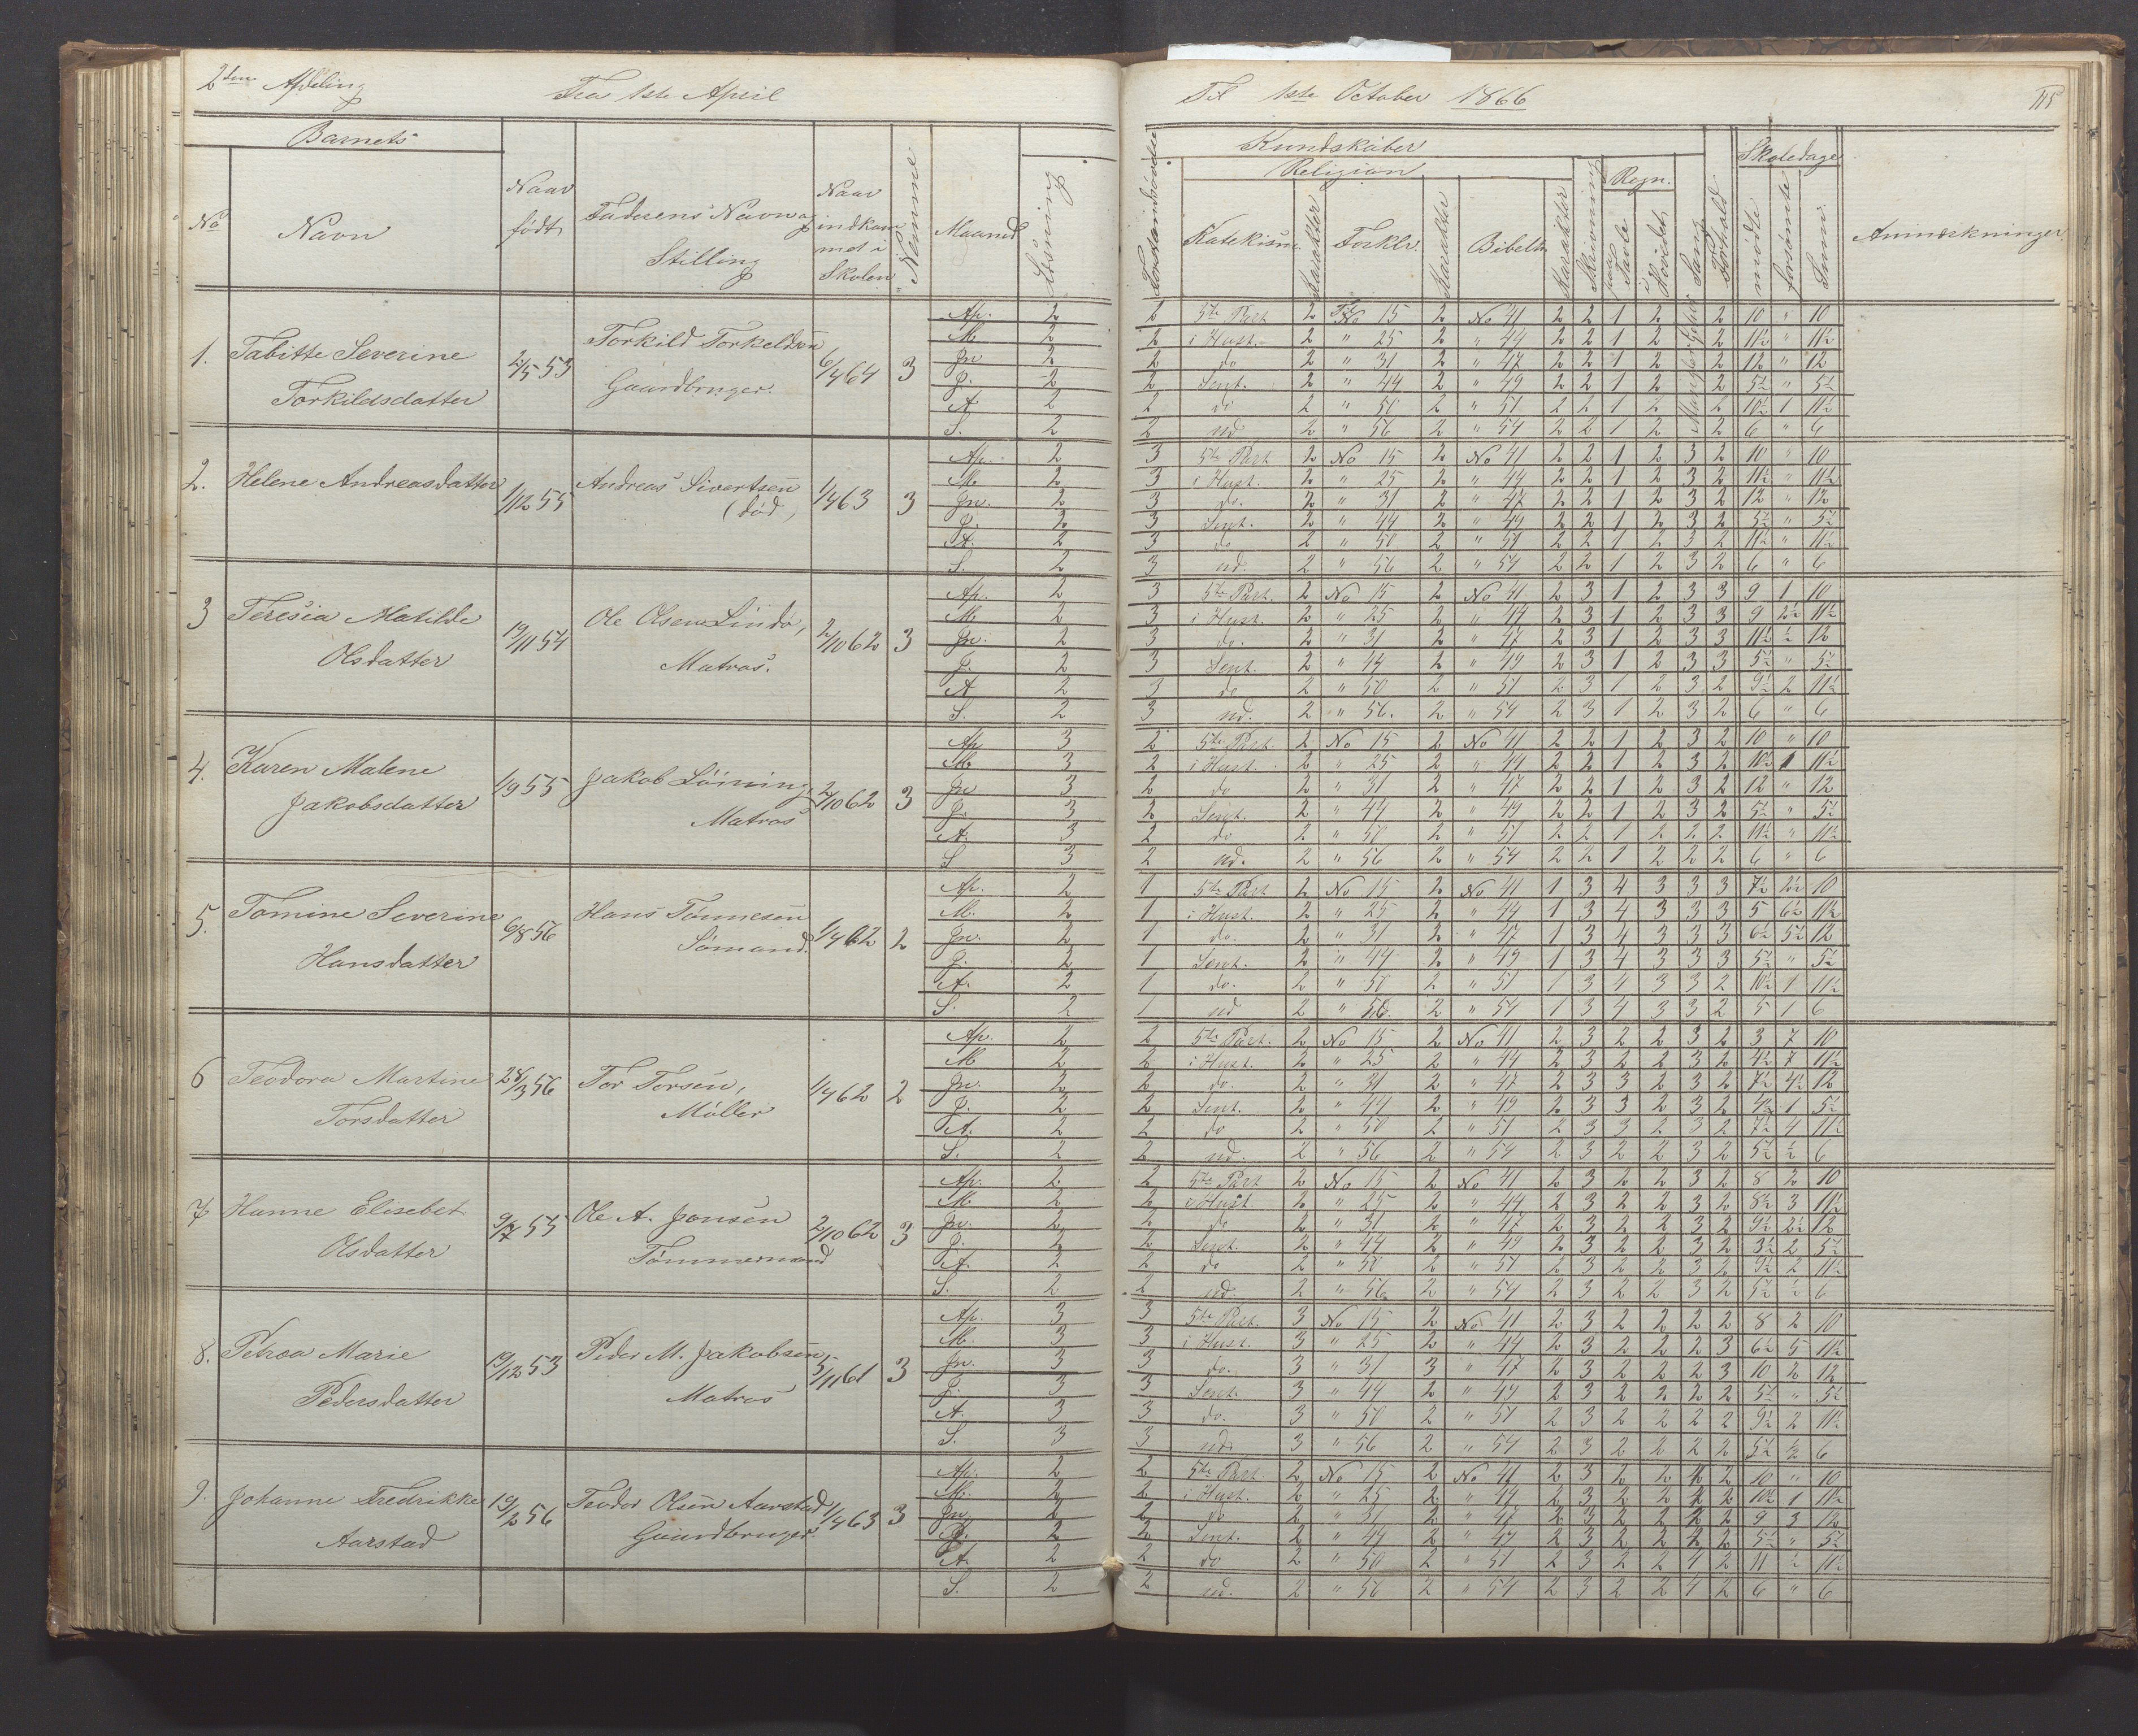 2den Afdeling Fra 1ste April
Til 1ste October 1866 115
Barnets
No Navn Naar født Faderens Navn og Stilling Naar indkommet i Skolen Nemme Maaned Læsning
Forstandsøvelse Kundskaber Skoledage
Religion Skrivning Regn. Sang Forhold
Katekism. Karakter Forklr. Karakter Bibelh. Karakter paa Tavle i Hovedet mødte forsømte Sum. Anmærkninger
1. Tabitte Severine Torkildsdatter 2/5 53 Torkild Torkeldsen Gaardbruger. 6/4 64 3
Ap. 2 2 5te Part 2 No 15 2 No 41 2 2 1 2 2 10 " 10
M 2 2 i Hust. 2 " 25 2 " 44 2 2 1 2 2 11½ " 11½
Jn 2 2 do 2 " 31 2 " 47 2 2 1 2 2 12 " 12
J. 2 2 Sent. 2 " 44 2 " 49 2 2 1 2 2 5½ " 5½
A 2 2 do 2 " 50 2 " 51 2 2 1 2 2 10½ 1 11½
S. 2 2 ud 2 " 56 2 " 54 2 2 1 2 2 6 " 6
2. Helene Andreasdatter 1/12 55 Andreas Sivertsen (død) 1/4 63 3
Ap. 2 3 5te Part 2 No 15 2 No 41 2 2 1 2 3 2 10 " 10
M. 2 3 i Hust. 2 " 25 2 " 44 2 2 1 2 3 2 11½ " 11½
Jn. 2 3 do. 2 " 31 2 " 47 2 2 1 2 3 2 12 " 12
J. 2 3 Sent. 2 " 44 2 " 49 2 2 1 2 3 2 5½ " 5½
A. 2 3 do 2 " 50 2 " 51 2 2 1 2 3 2 11½ " 11½
S. 2 3 ud. 2 " 56 2 " 54 2 2 1 2 3 2 6 " 6
3 Teresia Matilde Olsdatter 19/11 54 Ole Olsen Lindø, Matros. 2/10 62 3
Ap. 2 3 5te Part. 2 No 15 2 No 41 2 3 1 2 3 3 9 1 10
M 2 3 i Hust. 2 " 25 2 " 44 2 3 1 2 3 3 9 2½ 11½
Jn. 2 3 do. 2 " 31 2 " 47 2 3 1 2 3 3 11½ ½ 12
J. 2 3 Sent. 2 " 44 2 " 49 2 3 1 2 3 3 5½ " 5½
A 2 3 do 2 " 50 2 " 51 2 3 1 2 3 2 9½ 2 11½
S. 2 3 ud. 2 " 56. 2 " 54 2 3 1 2 3 2 6 " 6
4. Karen Malene Jakobsdatter 1/9 55 Jakob Løining, Matros 2/10 62 3
Ap 3 2 5te Part. 2 No 15 2 No 41 2 2 1 2 3 2 10 " 10
M 3 2 i Hust. 2 " 25 2 " 44 2 2 1 2 3 2 10½ 1 11½
Jn 3 2 do 2 " 31 2 " 47 2 2 1 2 3 2 12 " 12
J. 3 2 Sent. 2 " 44 2 " 49 2 2 1 2 3 2 5½ " 5½
A. 3 2 do 2 " 50 2 " 51 2 2 1 2 2 2 11½ " 11½
S 3 2 ud. 2 " 56 2 " 54 2 2 1 2 2 2 6 " 6
5. Tomine Severine Hansdatter 6/8 56 Hans Tønnesen Sømand. 1/4 62 2
Ap. 2 1 5te Part 2 No 15 2 No 41 1 3 4 3 3 3 7½ 2½ 10
M. 2 1 i Hust. 2 " 25 2 " 44 1 3 4 3 3 3 5 6½ 11½
Jn. 2 1 do. 2 " 31 2 " 47 1 3 4 3 3 3 6½ 5½ 12
J. 2 1 Sent. 2 " 44 2 " 49 1 3 4 3 3 3 5½ " 5½
A. 2 1 do. 2 " 50 2 " 51 1 3 4 3 3 2 10½ 1 11½
S. 2 1 ud 2 " 56. 2 " 54 1 3 4 3 3 2 5 1 6
6 Teodora Martine Torsdatter 28/3 56 Tor Torsen, Møller 1/4 62 2
Ap. 2 2 5te Part. 2 No 15 2 No 41 2 3 2 2 3 2 3 7 10
M 2 2 i Hust. 2 " 25 2 " 44 2 3 2 2 3 2 4½ 7 11½
Jn. 2 2 do. 2 " 31 2 " 47 2 3 3 2 3 2 7½ 4½ 12
J. 2 2 Sent. 2 " 44 2 " 49 2 3 3 2 3 2 4½ 1 5½
A. 2 2 do 2 " 50 2 " 51 2 3 3 2 3 2 7½ 4 11½
S. 2 2 ud. 2 " 56 2 " 54 2 3 2 2 3 2 5½ ½ 6
7 Hanne Elisebet Olsdatter 9/7 55 Ole A. Jonsen Tømmermand 2/10 62 3
Ap. 2 2 5te Part 2 No 15 2 No 41 2 3 2 2 3 2 8 2 10
M 2 2 i Hust. 2 " 25 2 " 44 2 3 2 2 3 2 8½ 3 11½
Jn. 2 2 do 2 " 31 2 " 47 2 3 2 2 3 2 9½ 2½ 12
J. 2 2 Sent. 2 " 44 2 " 49 2 3 2 2 3 2 3½ 2 5½
A. 2 2 do 2 " 50 2 " 51 2 3 2 2 3 2 9½ 2 11½
S. 2 2 ud. 2 " 56 2 " 54 2 3 2 2 3 2 5½ ½ 6
8. Petrea Marie Pedersdatter 19/12 53 Peder M. Jakobsen, Matros 5/11 61 3
Ap. 3 3 5te Part. 3 No 15 2 No 41 2 3 2 2 2 2 8 2 10
M. 3 3 i Hust. 3 " 25 2 " 44 2 3 2 2 2 3 6½ 5 11½
Jn. 3 3 do. 3 " 31 3 " 47 2 3 2 2 2 3 10 2 12
J. 3 3 Sent. 3 " 44 2 " 49 2 3 2 2 2 2 5½ " 5½
A. 3 3 do. 3 " 50 2 " 51 2 3 2 2 2 2 9½ 2 11½
S. 3 3 ud. 3 " 56 2 " 54 2 3 2 2 2 2 5½ ½ 6
9. Johanne Fredrikke Aarstad 19/2 56 Teodor Olsen Aarstad Gaardbruger. 1/4 63 3
Ap. 2 2 5te Part. 2 No 15 2 No 41 2 3 2 2 4 2 10 " 10
M. 2 2 i Hust. 2 " 25 2 " 44 2 3 2 2 4 2 10½ 1 11½
Jn 2 2 do 2 " 31 2 " 47 2 3 2 2 4 2 9 3 12
J. 2 2 Sent. 2 " 44 2 " 49 2 3 2 2 4 2 5½ " 5½
A. 2 2 do 2 " 50 2 " 51 2 3 2 2 4 2 11 ½ 11½
S. 2 2 ud. 2 " 56 2 " 54 2 3 2 2 4 2 6 " 6